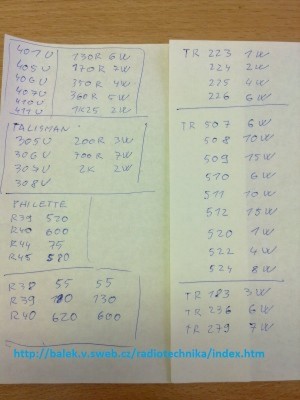 401U 130R 6W
405U 170R 7W
406U 350R 4W
407U 360R 5W
410U 1K25 2W
411U
TALISMAN
305U 200R 3W
306U 700R 7W
307U 2K 2W
308U
PHILETTE
R39 520
R40 600
R44 75
R45 580
R38 55 55
R39 180 130
R40 620 600
TR 223 1W
224 2W
225 4W
226 6W
TR 507 6W
508 10W
509 15W
510 6W
511 10W
512 15W
520 1W
522 4W
524 8W
TR 183 3W
TR 236 6W
TR 279 7W
http://balek.v.sweb.cz/radiotechnika/index.htm